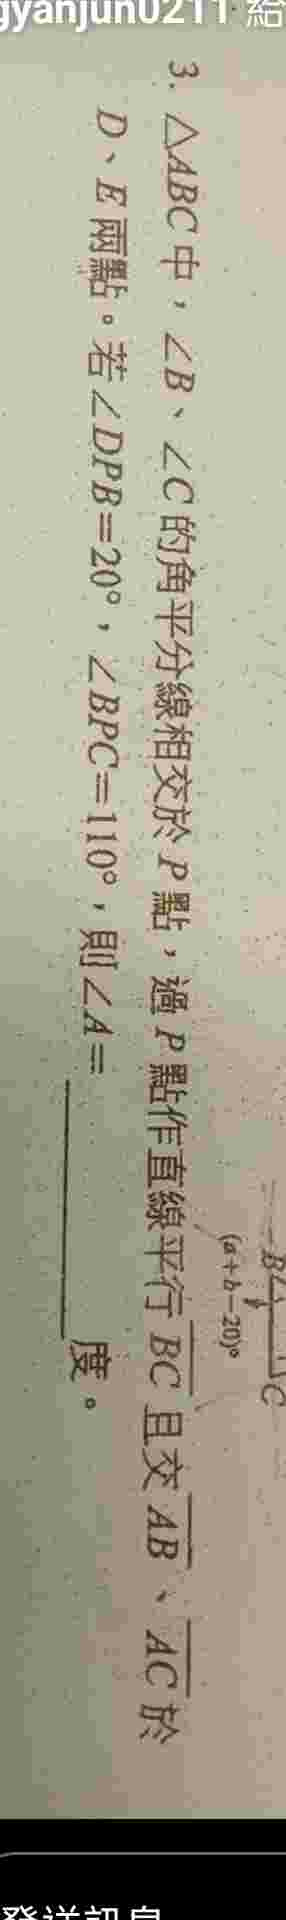 gyanjun0211 給
B
C
(a+b−20)°
3. △ABC中，∠B、∠C的角平分線相交於P點，過P點作直線平行BC且交AB、AC於
D、E兩點。若∠DPB=20°，∠BPC=110°，則∠A=＿＿＿＿度。
發送訊息